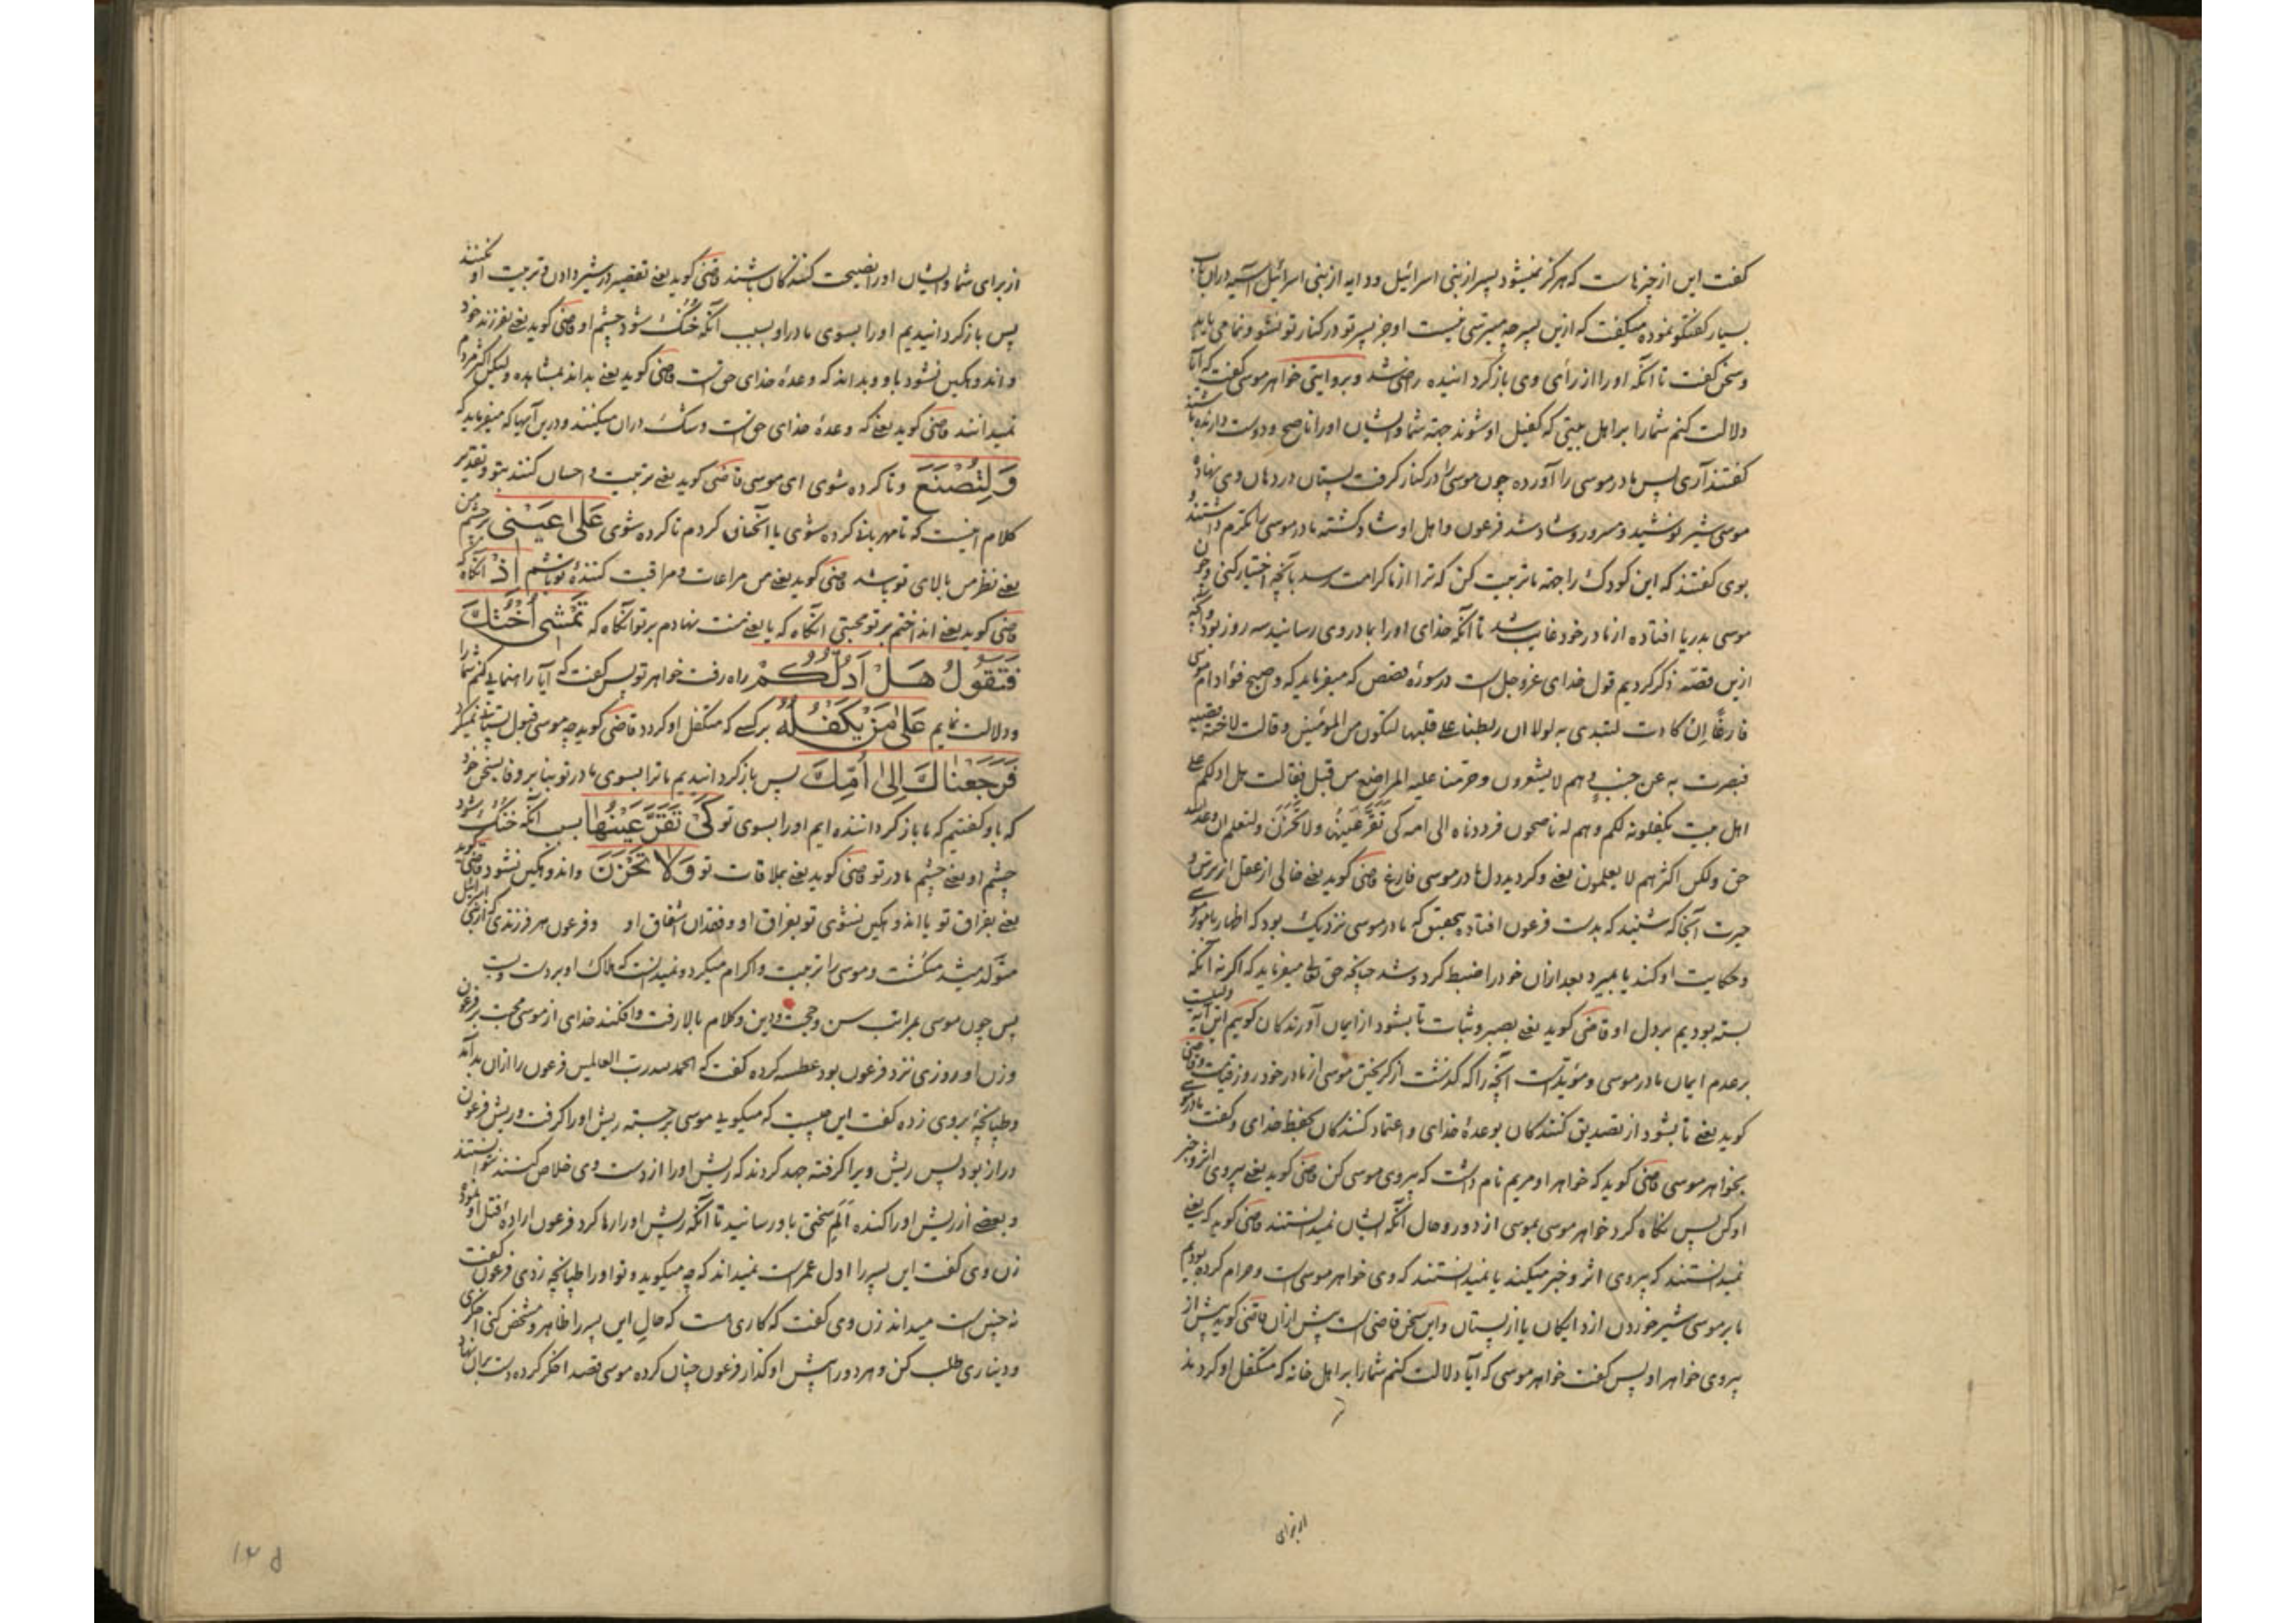 کفت این از چیزهاست که هرگز نمیشود پسر از بنی اسرائیل و دایه از بنی اسرائیل
بسیار کفتگو نموده میکفت که ازین پسر چه میترسی نیست او جز پسر تو در کنار تو نشو و نما می یابد
و سخن کفت تا آنکه او را از رأی وی بازگردانیده راضی شد و بروایتی خواهر موسی کفت که آیا
دلالت کنم شما را بر اهل بیتی که کفیل او شوند جهة شما و ایشان او را ناصح و دوست دارنده باشند
کفتند آری پس مادر موسی را آورده چون موسی را در کنار کرفت پستان در دهان وی نهاده
موسی شیر نوشید و مسرور و شاد شد فرعون و اهل او شاد کشته مادر موسی را مکرم داشتند و
بوی کفتند که این کودک را جهة ما تربیت کن که ترا از ما کرامت رسد بآنچه اختیار کنی و چون
موسی بدریا افتاده از مادر خود غایب شد تا آنکه خدای او را بمادر وی رسانید سه روز بود و آنچه
ازین قصّه ذکر کردیم قول خدای عزوجل است در سورۀ قصص که میفرماید که و اصبح فؤاد ام موسی
فارغًا اِن کادت لتبدی به لولا ان ربطنا علی قلبها لتکون من المؤمنین و قالت لاخته قصیه
فبصرت به عن جنب و هم لا یشعرون و حرّمنا علیه المراضع من قبل فقالت هل ادلکم علی
اهل بیت یکفلونه لکم و هم له ناصحون فرددناه الی امه کی تَقَرَّ عَینُها ولا تَحْزَنَ ولتعلم ان وعد الله
حق ولکن اکثرهم لا یعلمون یعنی و کردید دل مادر موسی فارغ قاضی کوید یعنی خالی از عقل از ترس و
حیرت آنجا که شنید که بدست فرعون افتاده بتحقیق که مادر موسی نزدیک بود که اظهار بامر موسی
و حکایت او کند یا بمیرد بعد ازان خود را ضبط کرد و شد چنانچه حق تعالی میفرماید که اکر نه آنکه
بسته بودیم بر دل او قاضی کوید یعنی بصبر و ثبات تا بشود از ایمان آورندگان کویم این آیه
بر عدم ایمان مادر موسی و مؤید است آنچه را که کذشت از کریختن موسی از مادر خود روز
کوید یعنی تا بشود از تصدیق کنندکان بوعدۀ خدای و اعتماد کنندکان بحفظ خدای و کفت مادر موسی
بخواهر موسی قاضی کوید که خواهر او مریم نام داشت که پیروی موسی کن قاضی کوید یعنی پیروی اثر و خبر
او کن پس نکاه کرد خواهر موسی بموسی از دور و حال آنکه ایشان نمیدانستند قاضی کوید که یعنی
نمیدانستند که پیروی اثر و خبر میکند یا نمیدانستند که وی خواهر موسی است و حرام کرده بودیم
ما بر موسی شیر خوردن از دایکان یا از پستان و این سخن قاضی است پیش ازان قاضی کوید پیش از
پیروی خواهر او پس کفت خواهر موسی که آیا دلالت کنم شما را بر اهل خانه که متکفل او کردند
از برای
از برای شما و ایشان او را نصیحت کنندکان باشند قاضی کوید یعنی تقصیر در شیر دادن و تربیت او نکنند
پس بازکردانیدیم او را بسوی مادر او بسبب آنکه خنک شود چشم او قاضی کوید یعنی بفرزند خود
و اندوهکین نشود باو و بداند که وعدۀ خدای حق است قاضی کوید یعنی بداند بمشاهده ولیکن اکثر مردم
نمیدانند قاضی کوید یعنی که وعدۀ خدای حق است و شک دران میکنند و درین آیها که میفرماید که
وَلِتُصْنَعَ و تا کرده شوی ای موسی قاضی کوید یعنی تربیت و احسان کنند بتو و تقدیر
کلام اینست که تا مهربانی کرده شوی یا آنچنان کردم تا کرده شوی عَلی عَیْنی بر چشم من
یعنی نظر من بالای تو باشد قاضی کوید یعنی من مراعات و مراقبت کنندۀ تو باشم اِذْ آنکاه که
قاضی کوید یعنی انداختم بر تو محبتی آنکاه که یا یعنی منت نهادم بر تو آنکاه که تَمْشی اُخْتُکَ
فَتَقُولُ هَلْ اَدُلُّکُمْ راه رفت خواهر تو پس کفت که آیا راهنمایی کنم شما را
و دلالت نمایم عَلی مَنْ یَکْفُلُهُ بر کسی که متکفل او کردد قاضی کوید چه موسی قبول پستانی نمیکرد
فَرَجَعْناکَ اِلی اُمِّکَ پس بازکردانیدیم ما ترا بسوی مادر تو بنا بر وفا بسخن خود
که باو کفتیم که ما بازکرداننده ایم او را بسوی تو کَیْ تَقَرَّ عَیْنُها بسبب آنکه خنک شود
چشم او یعنی چشم مادر تو قاضی کوید یعنی بملاقات تو وَلا تَحْزَنَ و اندوهکین نشود قاضی کوید
یعنی بفراق تو یا اندوهکین نشوی تو بفراق او و فقدان اشفاق او و فرعون هر فرزندی که از بنی اسرائیل
متولد میشد میکشت و موسی را تربیت و اکرام میکرد و نمیدانست که هلاک او بر دست ویست
پس چون موسی بمراتب سن و حجت و دین و کلام بالا رفت و افکند خدای از موسی محبت بر فرعون
و زن او روزی نزد فرعون بود عطسه کرده کفت که الحمد لله رب العالمین فرعون را ازان بد آمد
و طپانچۀ بر وی زده کفت این چیست که میکویی موسی برجسته ریش او را کرفت و ریش فرعون
دراز بود پس ریش ویرا کرفته جهد کردند که ریش او را از دست وی خلاص کنند نتوانستند
و بعضی از ریش او را کنده اَلَمِ سختی باو رسانید تا آنکه ریش او را رها کرد فرعون ارادۀ قتل او نمود
زن وی کفت این پسر را اول عمر است نمیداند که چه میکوید و تو او را طپانچه زدی فرعون کفت
نه چنین است میداند زن وی کفت که کاری هست که حال این پسر را ظاهر و مشخص کنی اخکری
و دیناری طلب کن و هر دو را پیش او کذار فرعون چنان کرده موسی قصد اخکر کرده دست بران نهاد